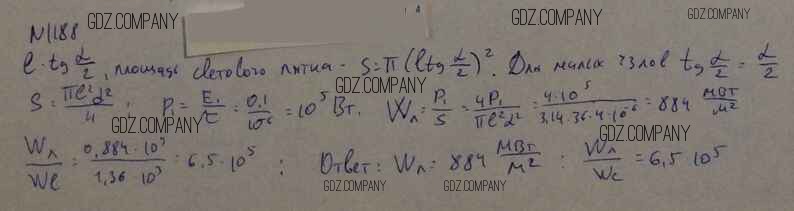 N1188
GDZ.COMPANY
GDZ.COMPANY
ℓ·tg α/2, площадь светового пятна - S=π(ℓtg α/2)². Для малых углов tg α/2 = α/2
GDZ.COMPANY
S = πℓ²α²/4; P₁ = E₁/τ = 0,1/10⁻⁶ = 10⁵ Вт. Wл = P₁/S = 4P₁/πℓ²α² = 4·10⁵/3,14·36·4·10⁻⁶ = 884 МВт/м²
GDZ.COMPANY
GDZ.COMPANY
Wл/Wc = 0,884·10⁹/1,36·10³ = 6,5·10⁵; Ответ: Wл = 884 МВт/м²; Wл/Wc = 6,5 10⁵
GDZ.COMPANY
GDZ.COMPANY
GDZ.COMPANY